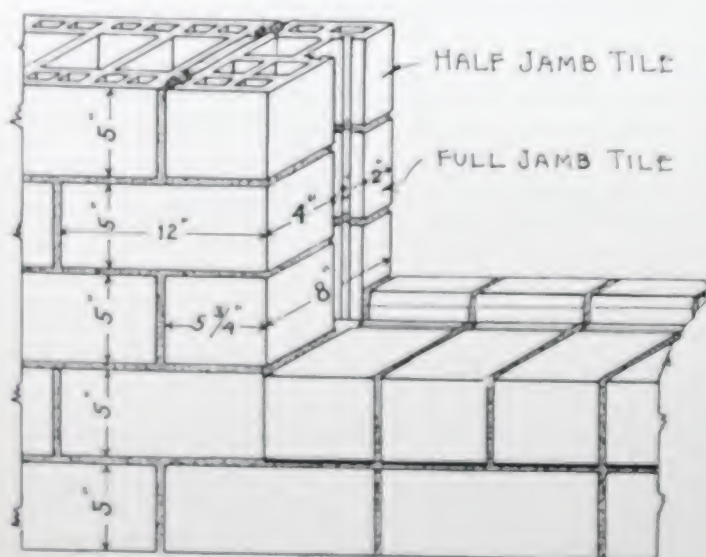 HALF JAMB TILE
5"
FULL JAMB TILE
2"
4"
5"
12"
8"
5"
5 3/4"
5"
5"